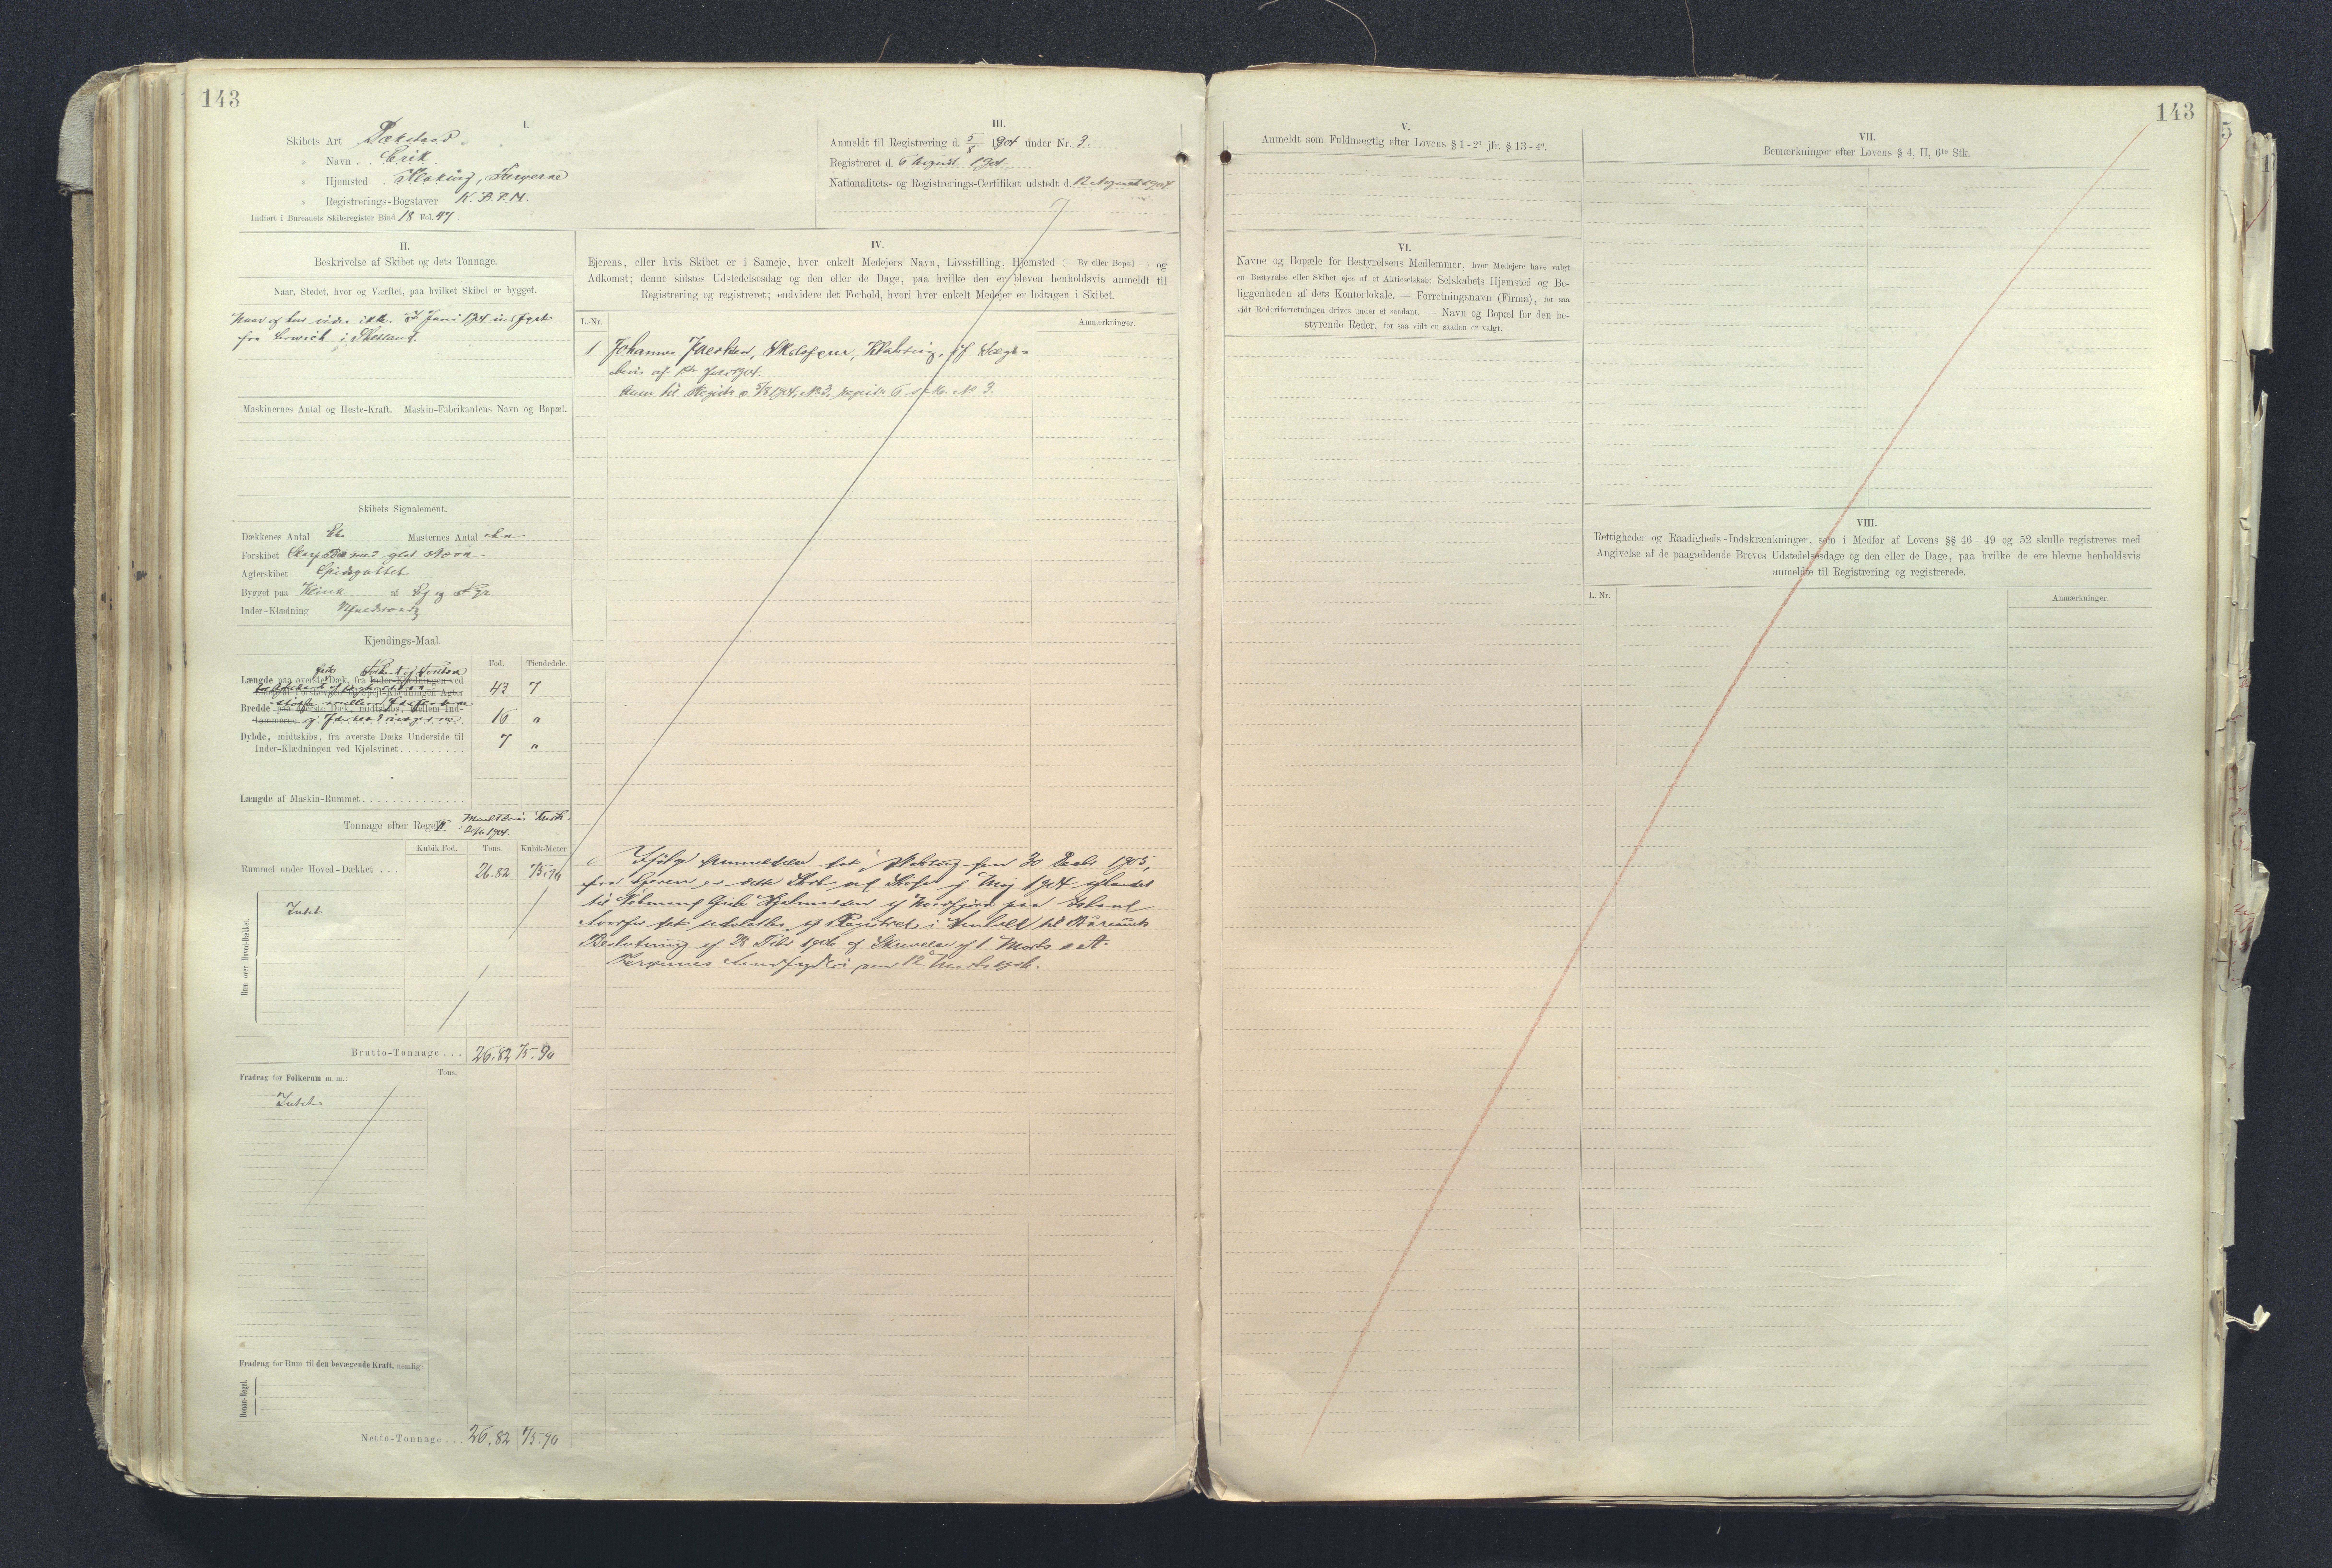 143
I.
Skibets Art Dæksbaad
» Navn . . Erik.
» Hjemsted . Klaksvig, Færøerne
» Registrerings-Bogstaver N.B.P.M.
Indført i Bureauets Skibsregister Bind 18 Fol. 47
III.
Anmeldt til Registrering d. 5/8 1904 under Nr. 3.
Registreret d. 6 August 1904
Nationalitets- og Registrerings-Certifikat udstedt d. 12 August 1904
II.
Beskrivelse af Skibet og dets Tonnage.
Naar, Stedet, hvor og Værftet, paa hvilket Skibet er bygget.
Naar og hvor vides ikke. Juni 1904 indført
fra Lerwick i Shetland.
Maskinernes Antal og Heste-Kraft. Maskin-Fabrikantens Navn og Bopæl.
Skibets Signalement.
Dækkenes Antal Et. Masternes Antal En
Forskibet med glat Stævn
Agterskibet Spidsgattet.
Bygget paa Klink af Eg og Fyr
Inder-Klædning
Kjendings-Maal.
Fod. Tiendedele.
Længde paa øverste Dæk, fra Inder-Klædningen ved
43 7
Bredde paa øverste Dæk, midtskibs, mellem Ind-
tømmerne
16 "
Dybde, midtskibs, fra øverste Dæks Underside til
Inder-Klædningen ved Kjølsvinet . . . . . . . . . 7 "
Længde af Maskin-Rummet . . . . . . . . . . . . . .
Tonnage efter Regel II.
1904.
Kubik-Fod. Tons. Kubik-Meter.
Rummet under Hoved-Dækket . . . 26.82 75.90
Rum over Hoved-Dækket.
Intet
Brutto-Tonnage . . . 26.82 75.90
Fradrag for Folkerum m. m.: Tons.
Intet
Fradrag for Rum til den bevægende Kraft, nemlig:
Donau-Regel.
Netto-Tonnage . . . 26.82 75.90
IV.
Ejerens, eller hvis Skibet er i Sameje, hver enkelt Medejers Navn, Livsstilling, Hjemsted (— By eller Bopæl —) og
Adkomst; denne sidstes Udstedelsesdag og den eller de Dage, paa hvilke den er bleven henholdsvis anmeldt til
Registrering og registreret; endvidere det Forhold, hvori hver enkelt Medejer er lodtagen i Skibet.
L.-Nr. Anmærkninger.
1 Johannes Jacobsen, Klaksvig,
bevis af 1904.
Anm til Registr d 5/8 1904, No 3, registr 6 No 3.
Ifølge Anmeldelse dat. Klaksvig den 30 1905,
fra Ejeren er dette Skib af Maj 1904
til Købmand Hjalmarsen af Nordfjord paa Island
hvorfor det udslettes af Registret i Henhold til Bureauets
Beslutning af Febr 1906 og Skrivelse af 1 Marts s. A.
Færøernes Landfogderi den Marts 1906.
143
V.
Anmeldt som Fuldmægtig efter Lovens § 1 - 2° jfr. § 13 - 4°.
VI.
Navne og Bopæle for Bestyrelsens Medlemmer, hvor Medejere have valgt
en Bestyrelse eller Skibet ejes af et Aktieselskab; Selskabets Hjemsted og Be-
liggenheden af dets Kontorlokale. — Forretningsnavn (Firma), for saa
vidt Rederiforretningen drives under et saadant. — Navn og Bopæl for den be-
styrende Reder, for saa vidt en saadan er valgt.
VII.
Bemærkninger efter Lovens § 4, II, 6te Stk.
VIII.
Rettigheder og Raadigheds-Indskrænkninger, som i Medfør af Lovens §§ 46—49 og 52 skulle registreres med
Angivelse af de paagældende Breves Udstedelsesdage og den eller de Dage, paa hvilke de ere blevne henholdsvis
anmeldte til Registrering og registrerede.
L.-Nr. Anmærkninger.